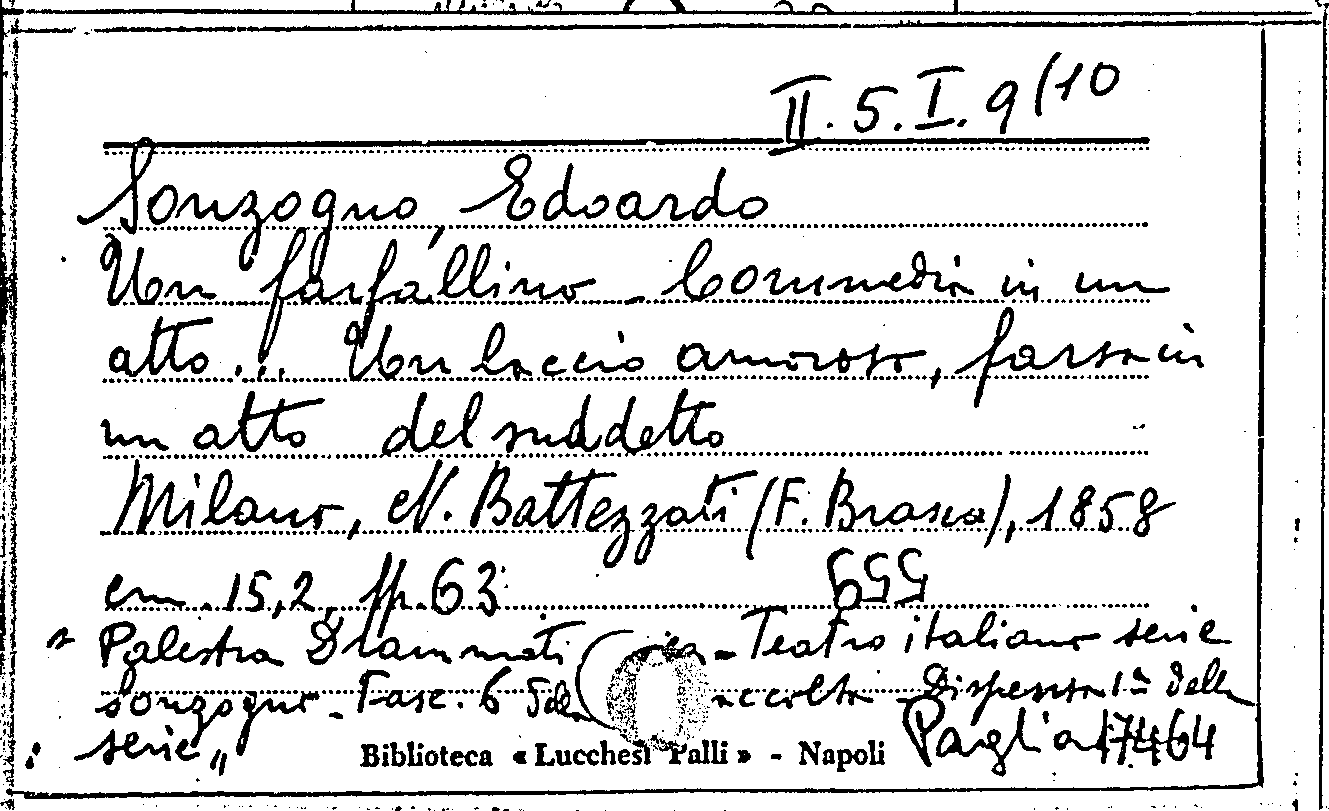 II. 5. I. 9/10
Sonzogno, Edoardo
Un farfallino - Commedia in un
atto... Un laccio amoroso, farsa in
un atto del suddetto
Milano, N. Battezzati (F. Brasca), 1858
cm. 15,2, pp. 63 655
Palestra Drammatica - Teatro italiano serie
Sonzogno - Fasc. 6 della raccolta - Dispensa 1ª della
serie"
Biblioteca « Lucchesi Palli » - Napoli